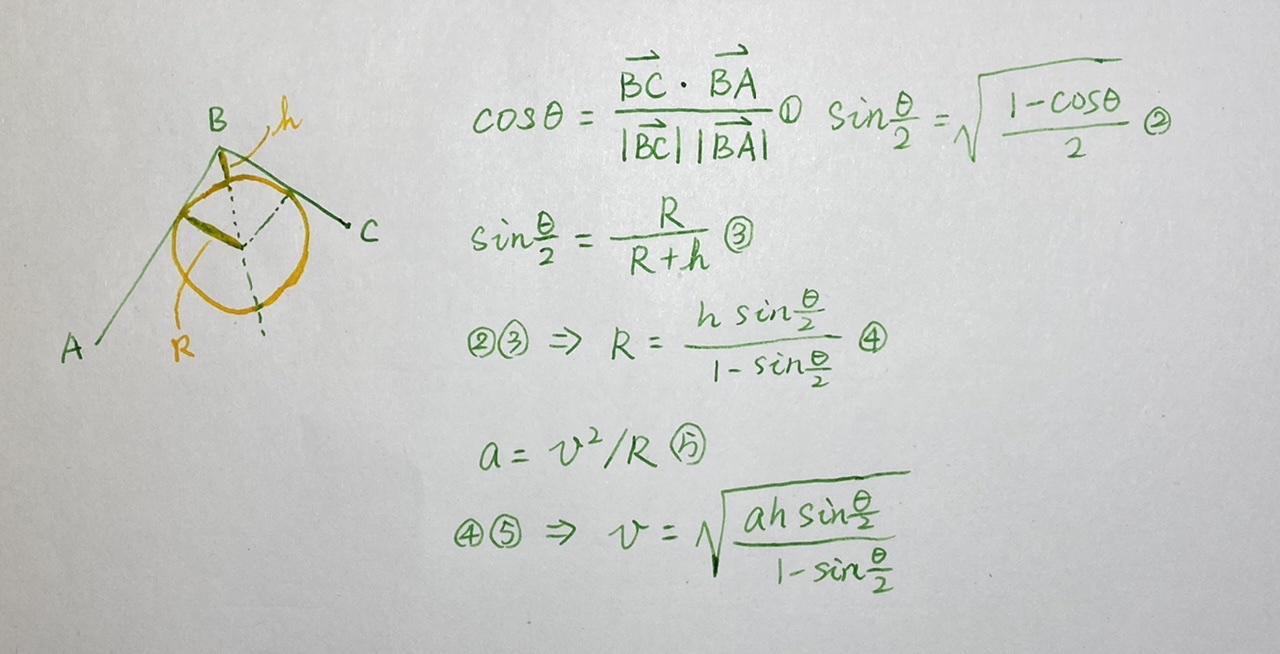 B
h
A
R
C
cosθ = (BC⃗ · BA⃗) / (|BC⃗| |BA⃗|) ① sin θ/2 = √((1-cosθ)/2) ②
sin θ/2 = R/(R+h) ③
②③ ⇒ R = (h sin θ/2)/(1- sin θ/2) ④
a = v²/R ⑤
④⑤ ⇒ v = √((ah sin θ/2)/(1-sin θ/2))